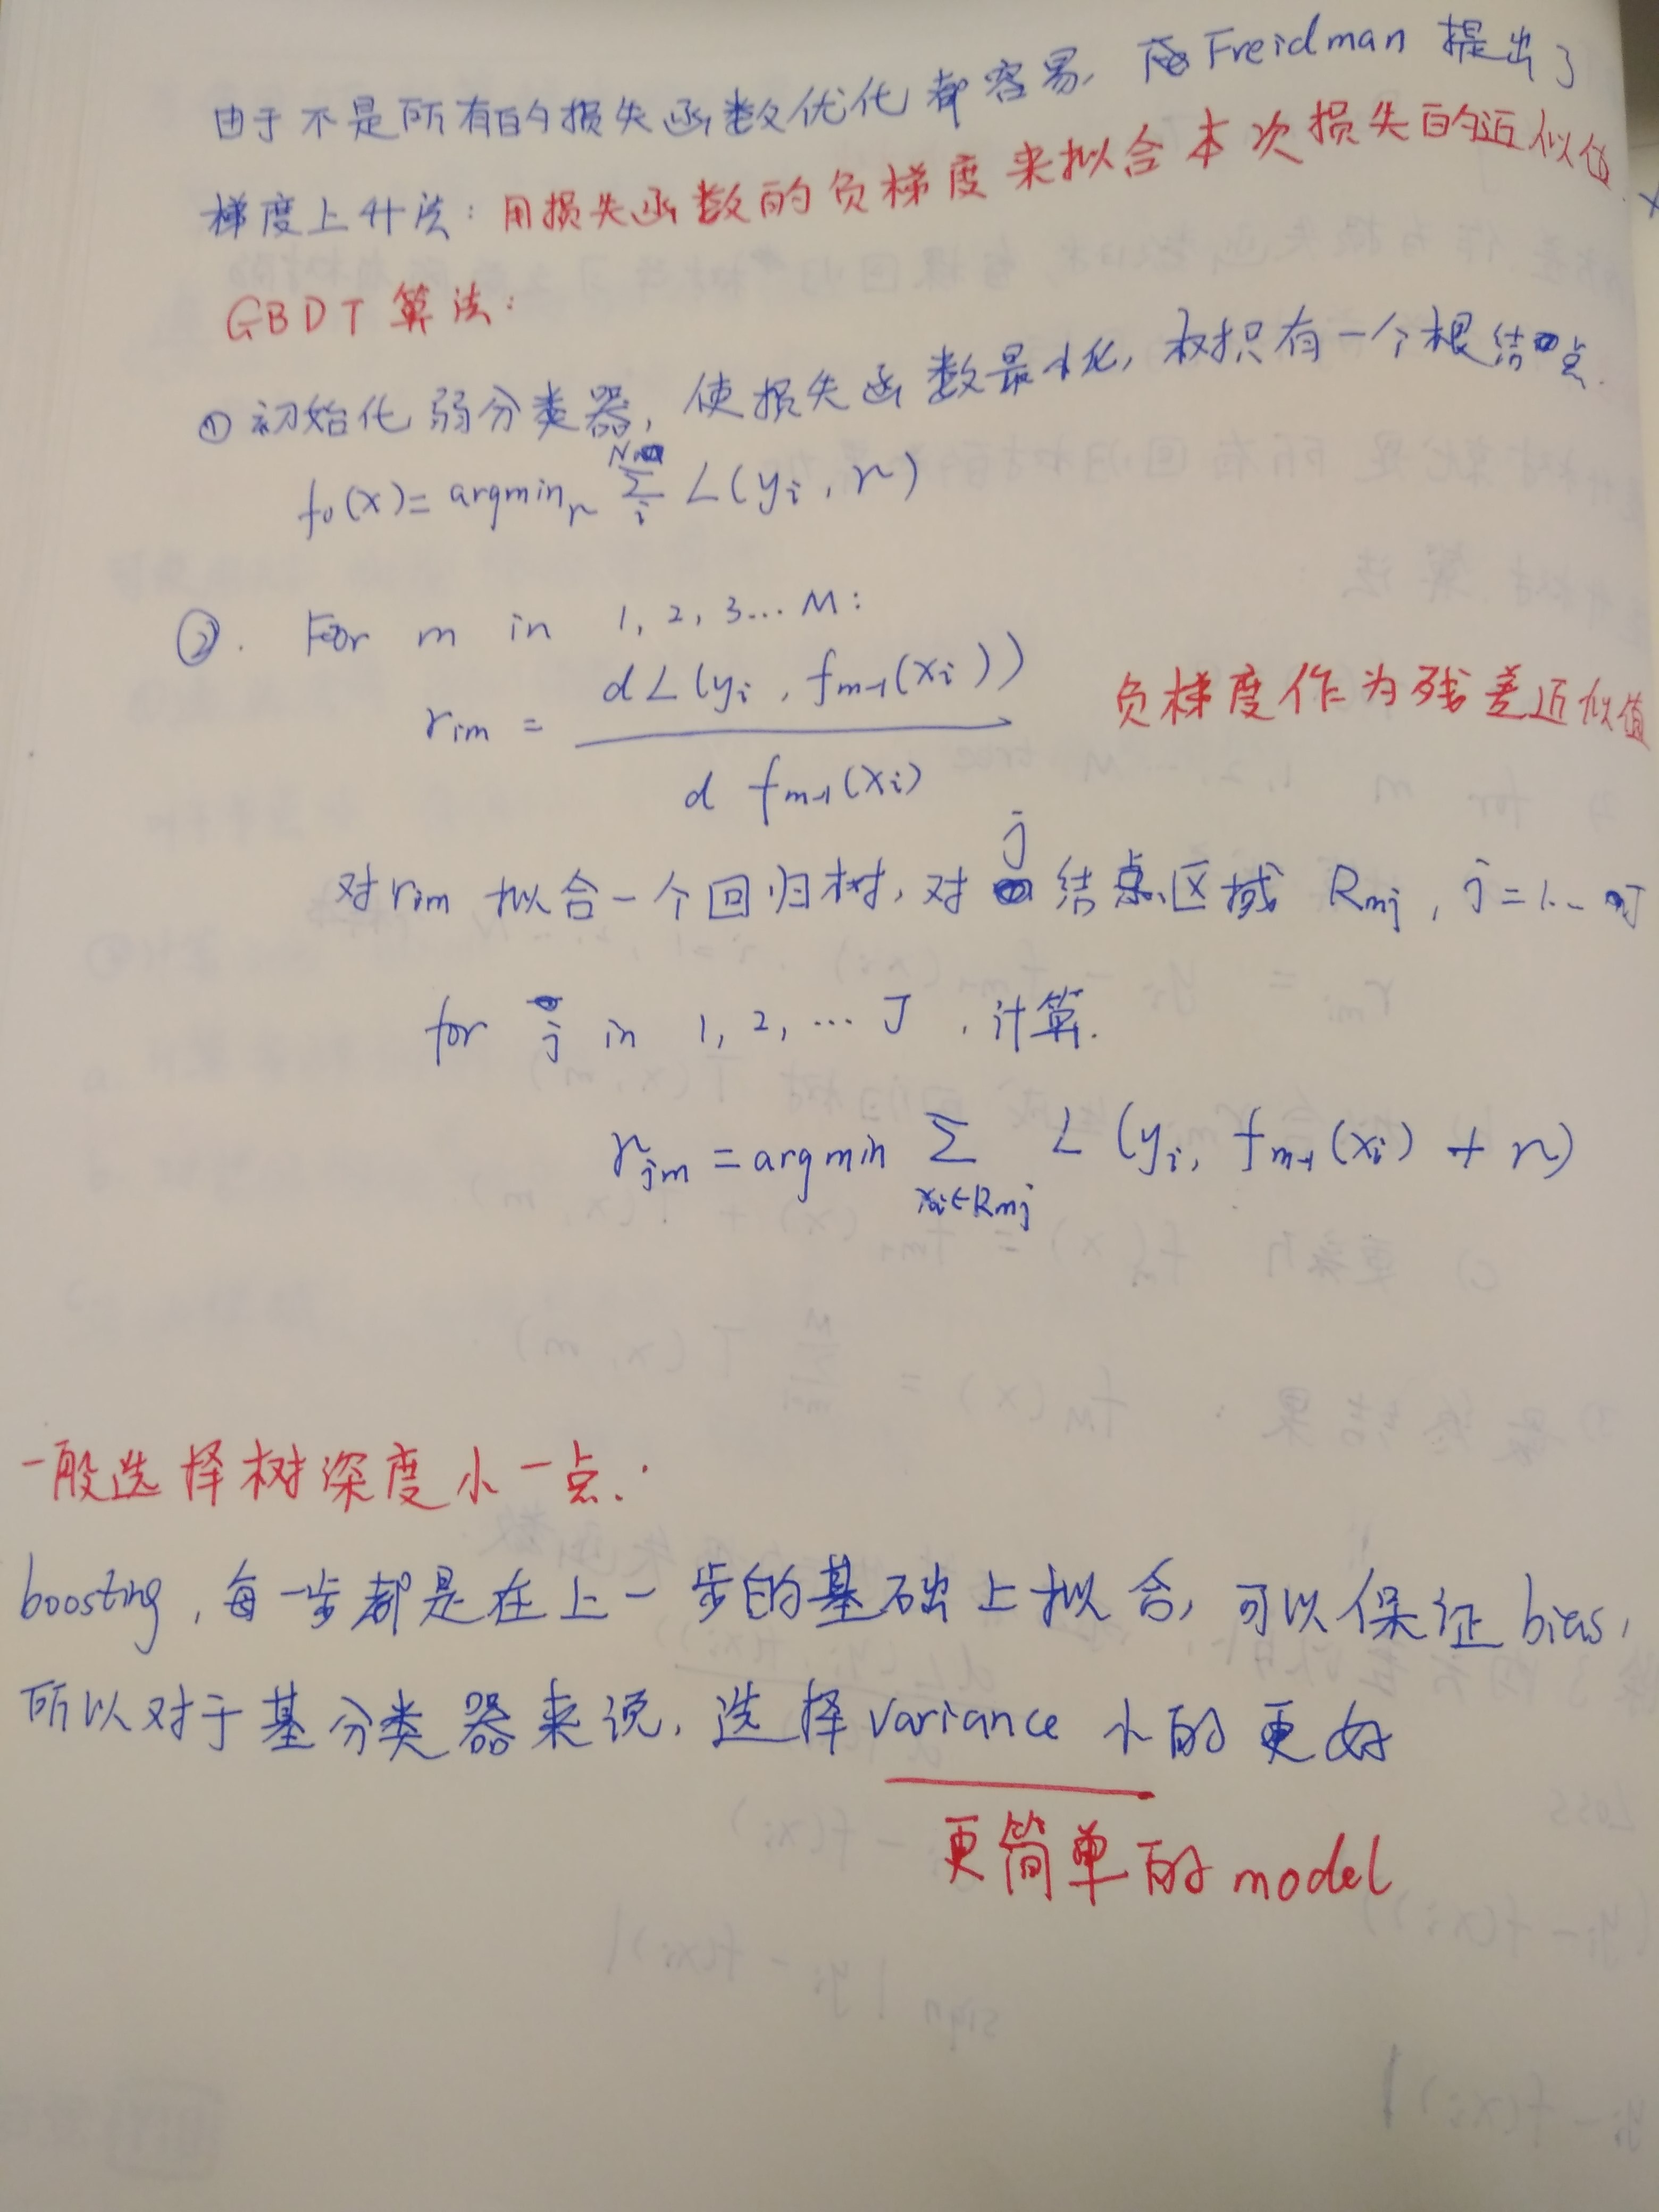 由于不是所有的损失函数优化都容易, Freidman 提出了
梯度上升法: 用损失函数的负梯度来拟合本次损失的近似值.
GBDT 算法:
① 初始化弱分类器, 使损失函数最小化, 树只有一个根结点.
f₀(x) = argmin_r Σ_i^N L(y_i, r)
②. For m in 1, 2, 3... M:
r_im = dL(y_i, f_{m-1}(x_i)) / d f_{m-1}(x_i) 负梯度作为残差近似值
对 r_im 拟合一个回归树, 对 j 结点区域 R_mj, j=1... J
for j in 1, 2, ... J, 计算.
r_jm = argmin Σ_{x_i∈R_mj} L(y_i, f_{m-1}(x_i) + r)
一般选择树深度小一点:
boosting, 每一步都是在上一步的基础上拟合, 可以保证 bias,
所以对于基分类器来说, 选择 variance 小的更好
更简单的 model